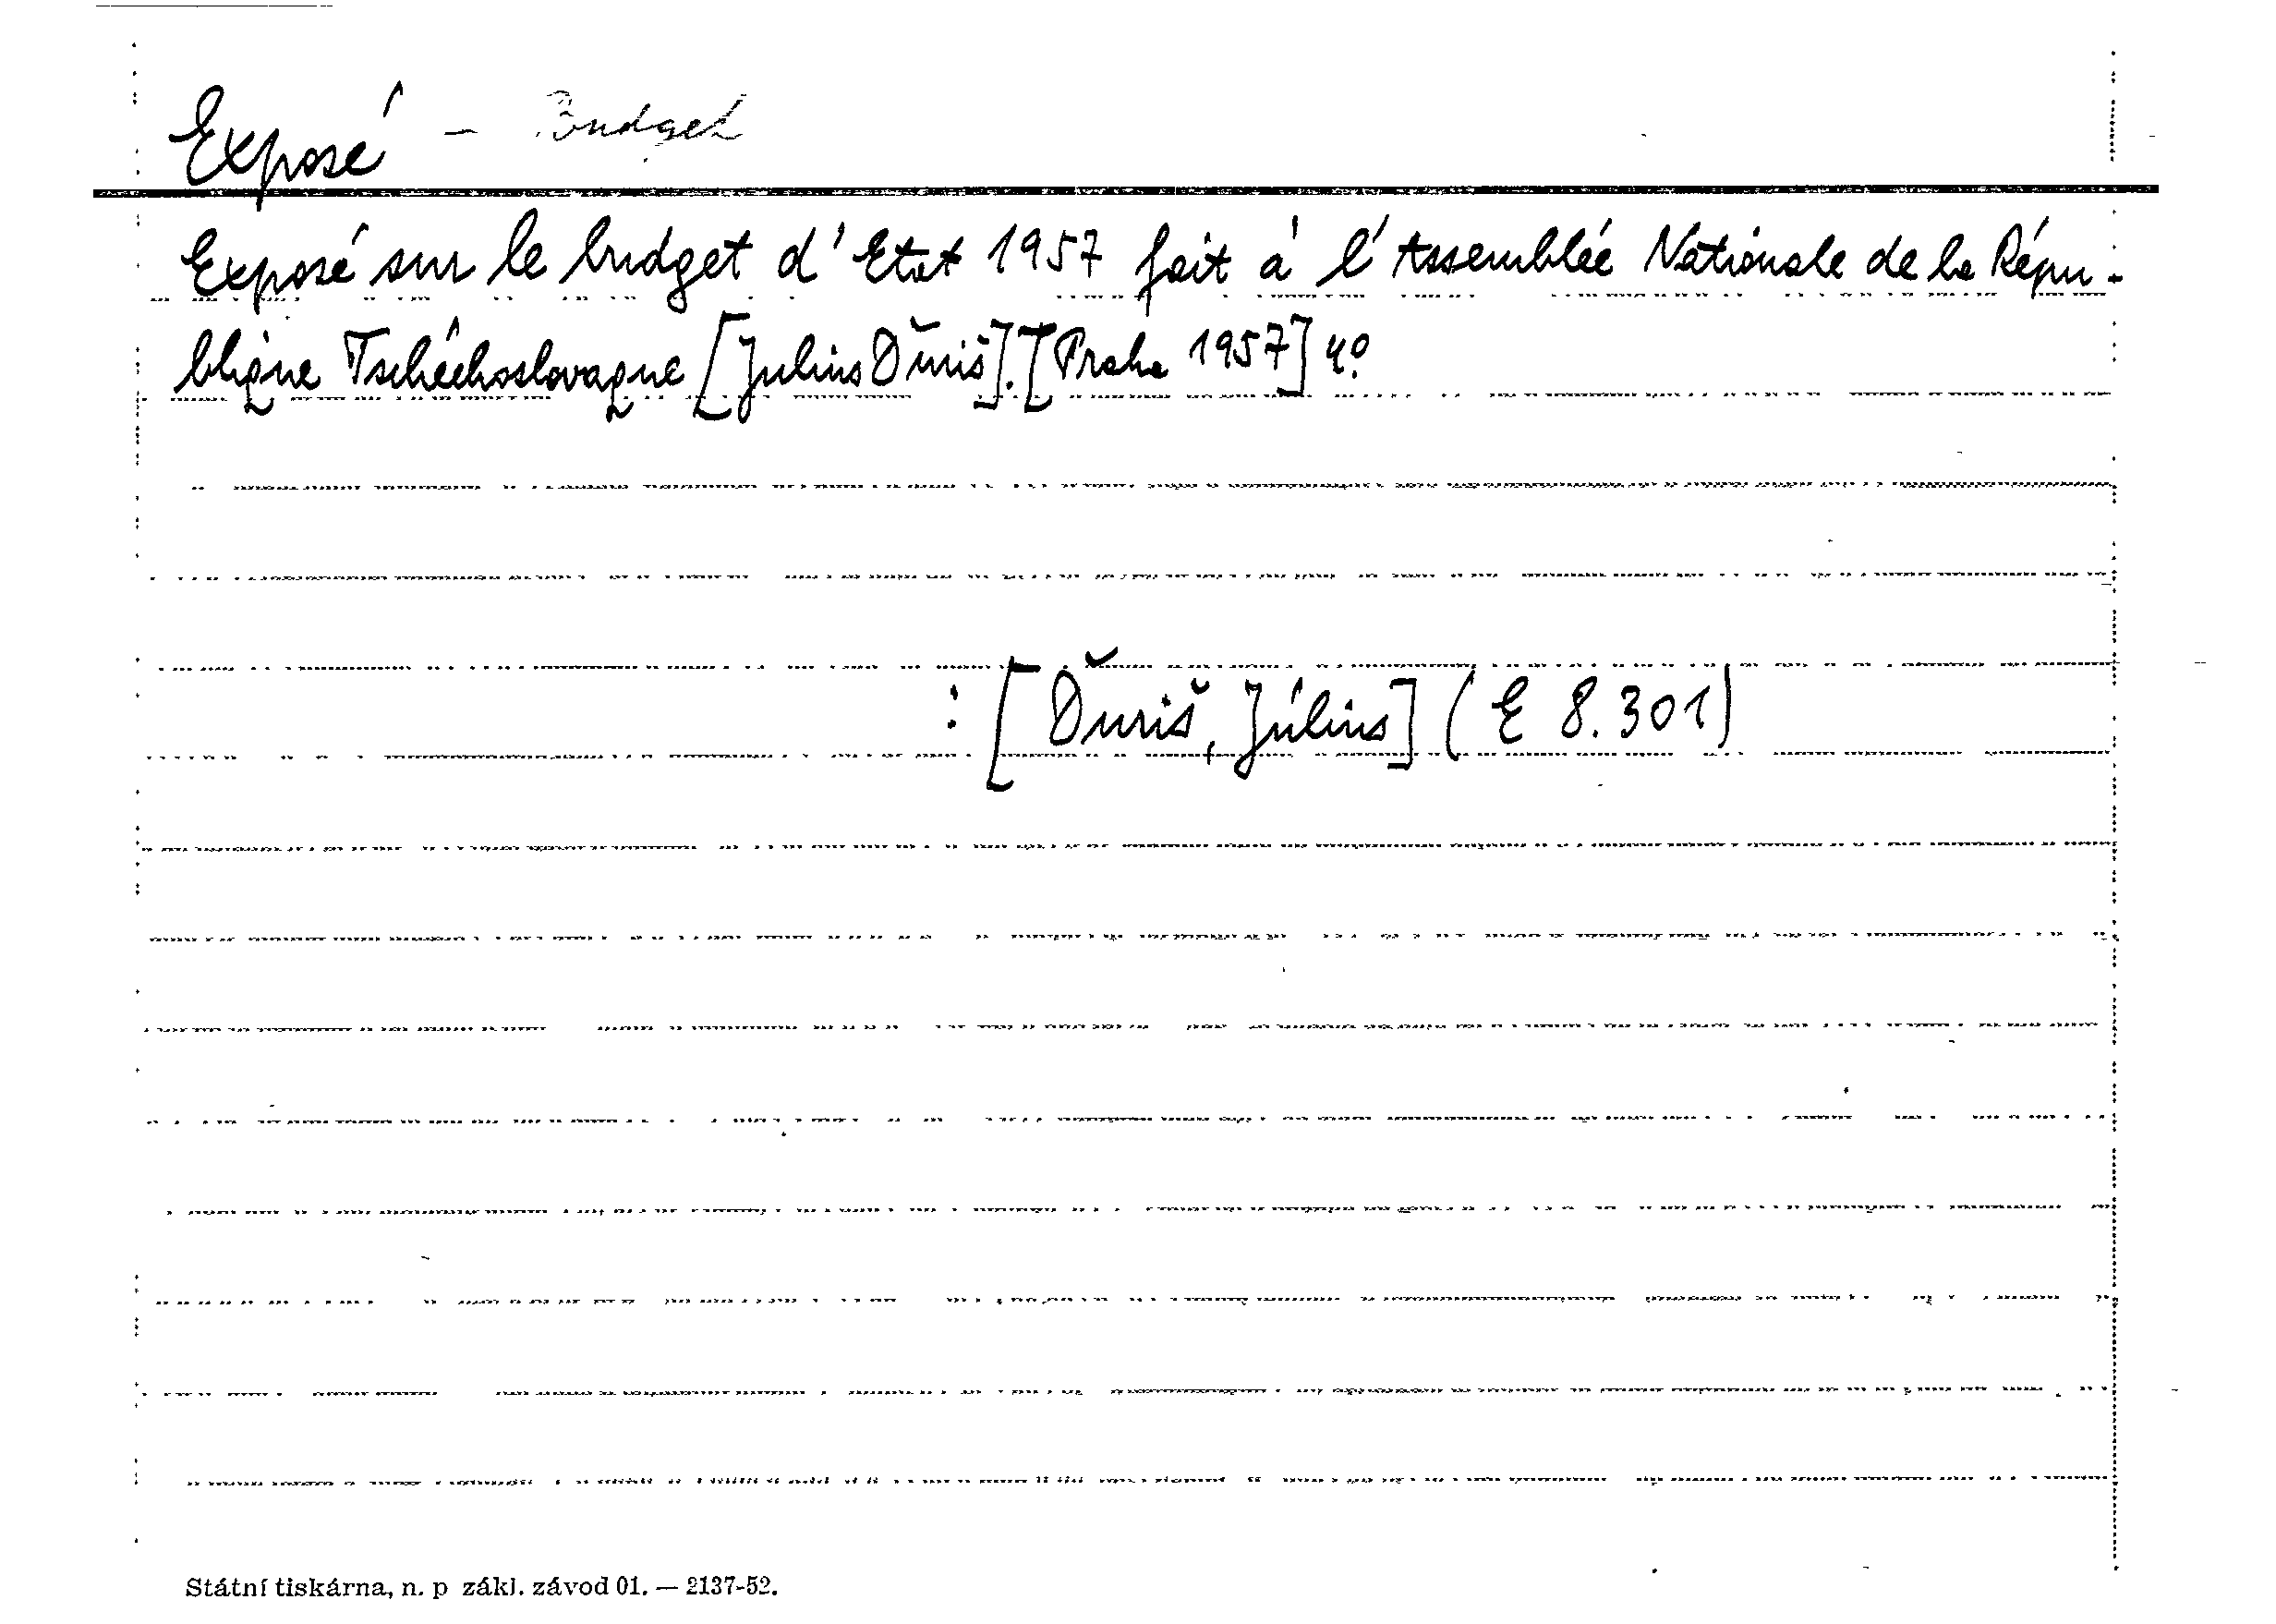 Exposé - Budget
Exposé sur le budget d'Etat 1957 fait à l'Assemblée Nationale de la Répu-
blique Tschéchoslovaque [Julius Ďuriš]. [Praha 1957] 4°
: [Ďuriš, Július] (E 8.301)
Státní tiskárna, n. p zákl. závod 01. — 2137-52.